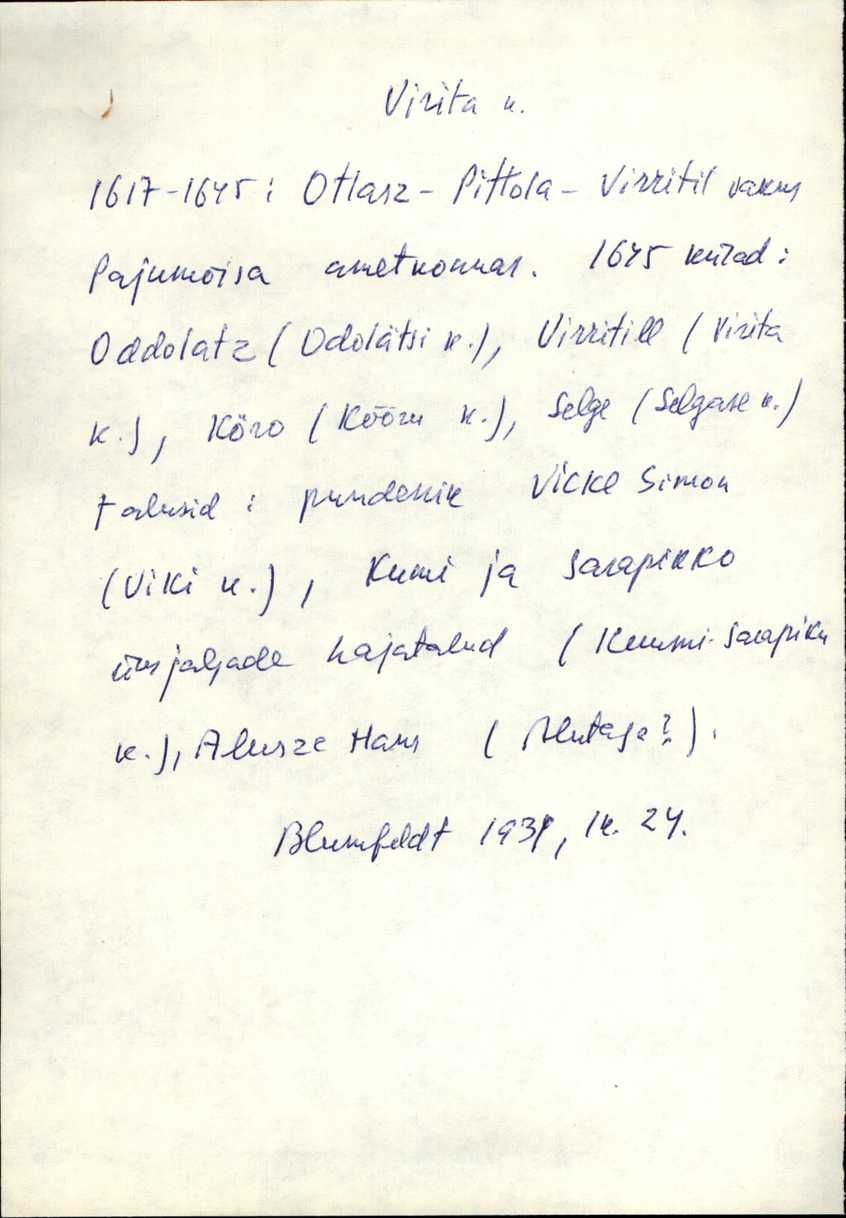 Virita k.
1617-1645: Otlasz - Pittola - Virritil vakus
Pajumõisa ametkonnas. 1645 külad:
Oddolatz (Odolätsi k.), Virritill (Virita
k.), Köro (Kõõru k.), Selge (Selgase k.)
talusid: pundenik Vicke Simon
(Viki k.), Kumi ja Sarapikko
üksjalgade hajatalud (Kuumi-Sarapiku
k.), Alusze Hans (Alutaga?).
Blumfeldt 1931, lk. 24.